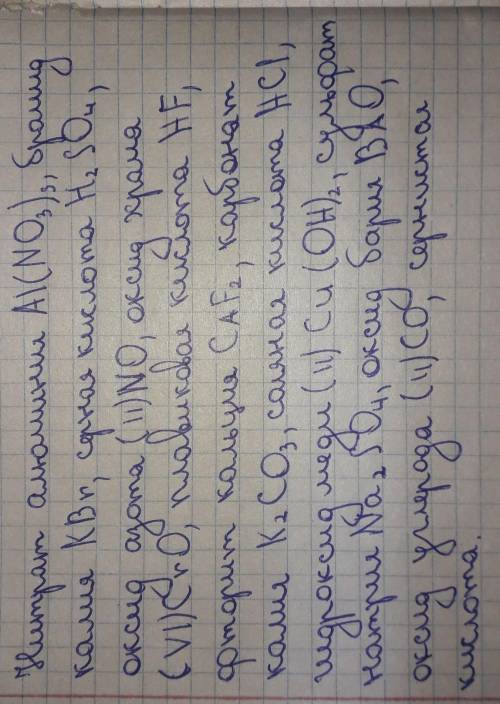 Нитрат алюминия Al(NO3)3, бромид
калия KBr, серная кислота H2SO4,
оксид азота (II)NO, оксид храма
(VI)CrO, плавиковая кислота HF,
фторит кальция CAF2, карбонат
калия K2CO3, соляная кислота HCl,
гидроксид меди (II) Cu(OH)2, сульфат
натрия Na2SO4, оксид бария BAO,
оксид углерода (II)CO, сернистая
кислота.